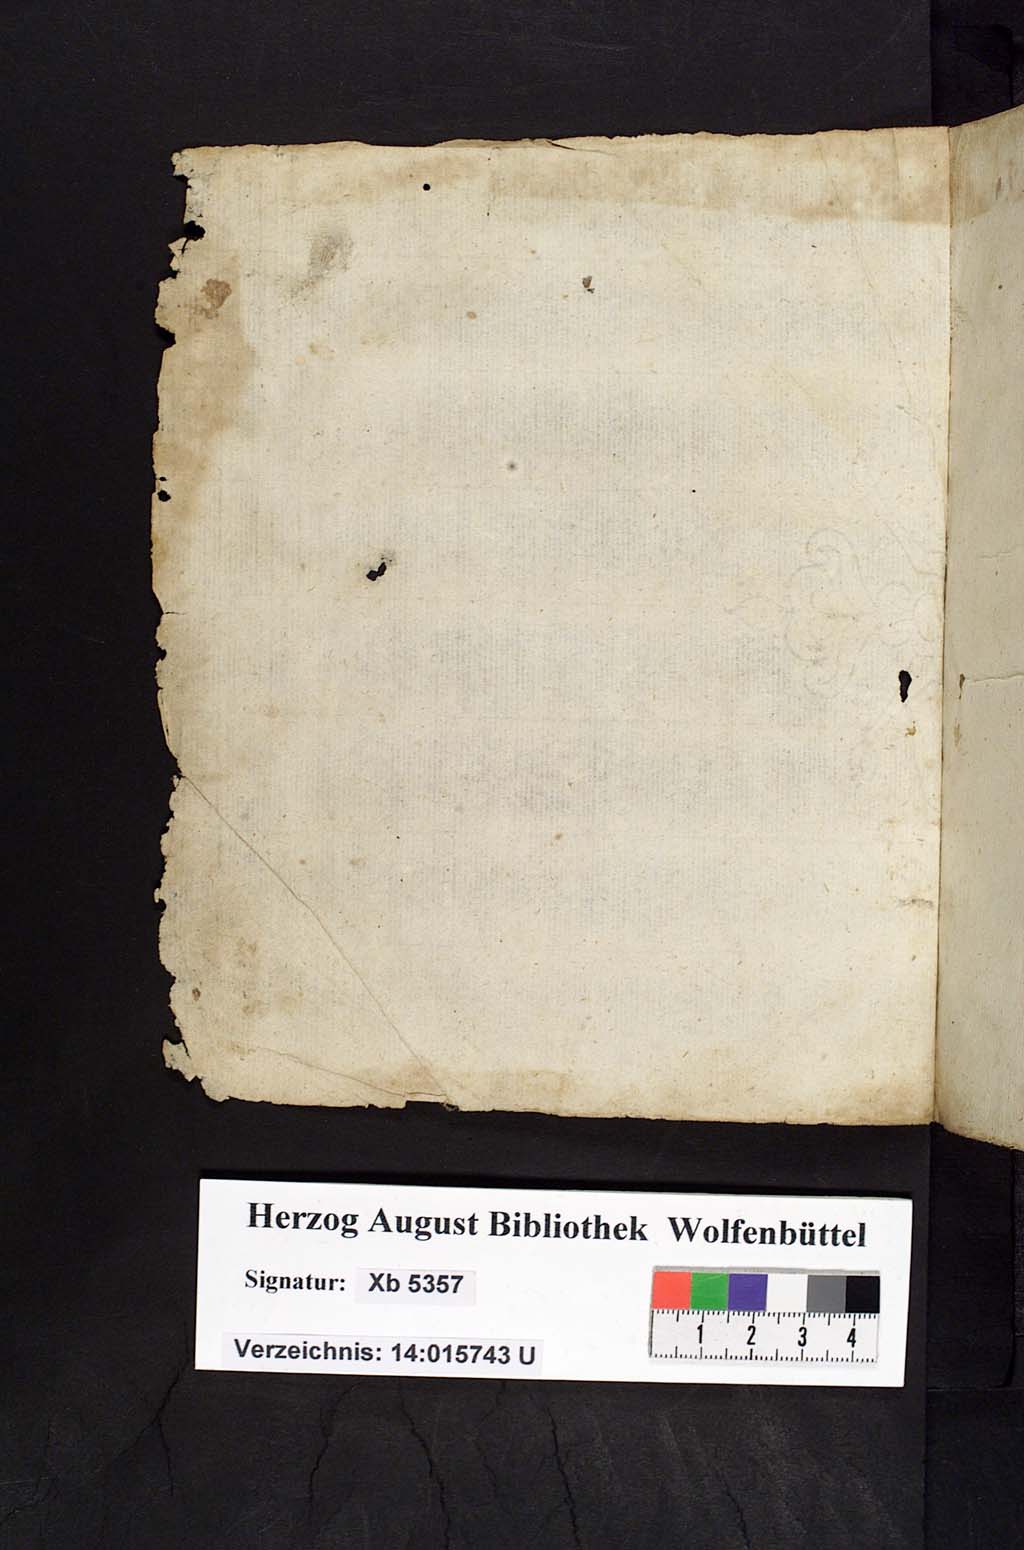 Herzog August Bibliothek Wolfenbüttel
Signatur: Xb 5357
Verzeichnis: 14:015743 U
1 2 3 4